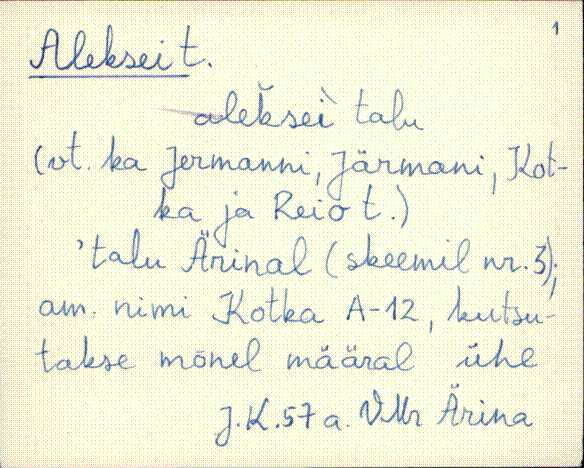 1
Aleksei t.
alek̆sei̇̀ talu
(vt. ka Jermanni, Järmani, Kot-
ka ja Reio t.)
'talu Ärinal (skeemil nr. 3);
am. nimi Kotka A-12, kutsu-
takse mõnel määral ühl
J.K. 57 a. VMr Ärina